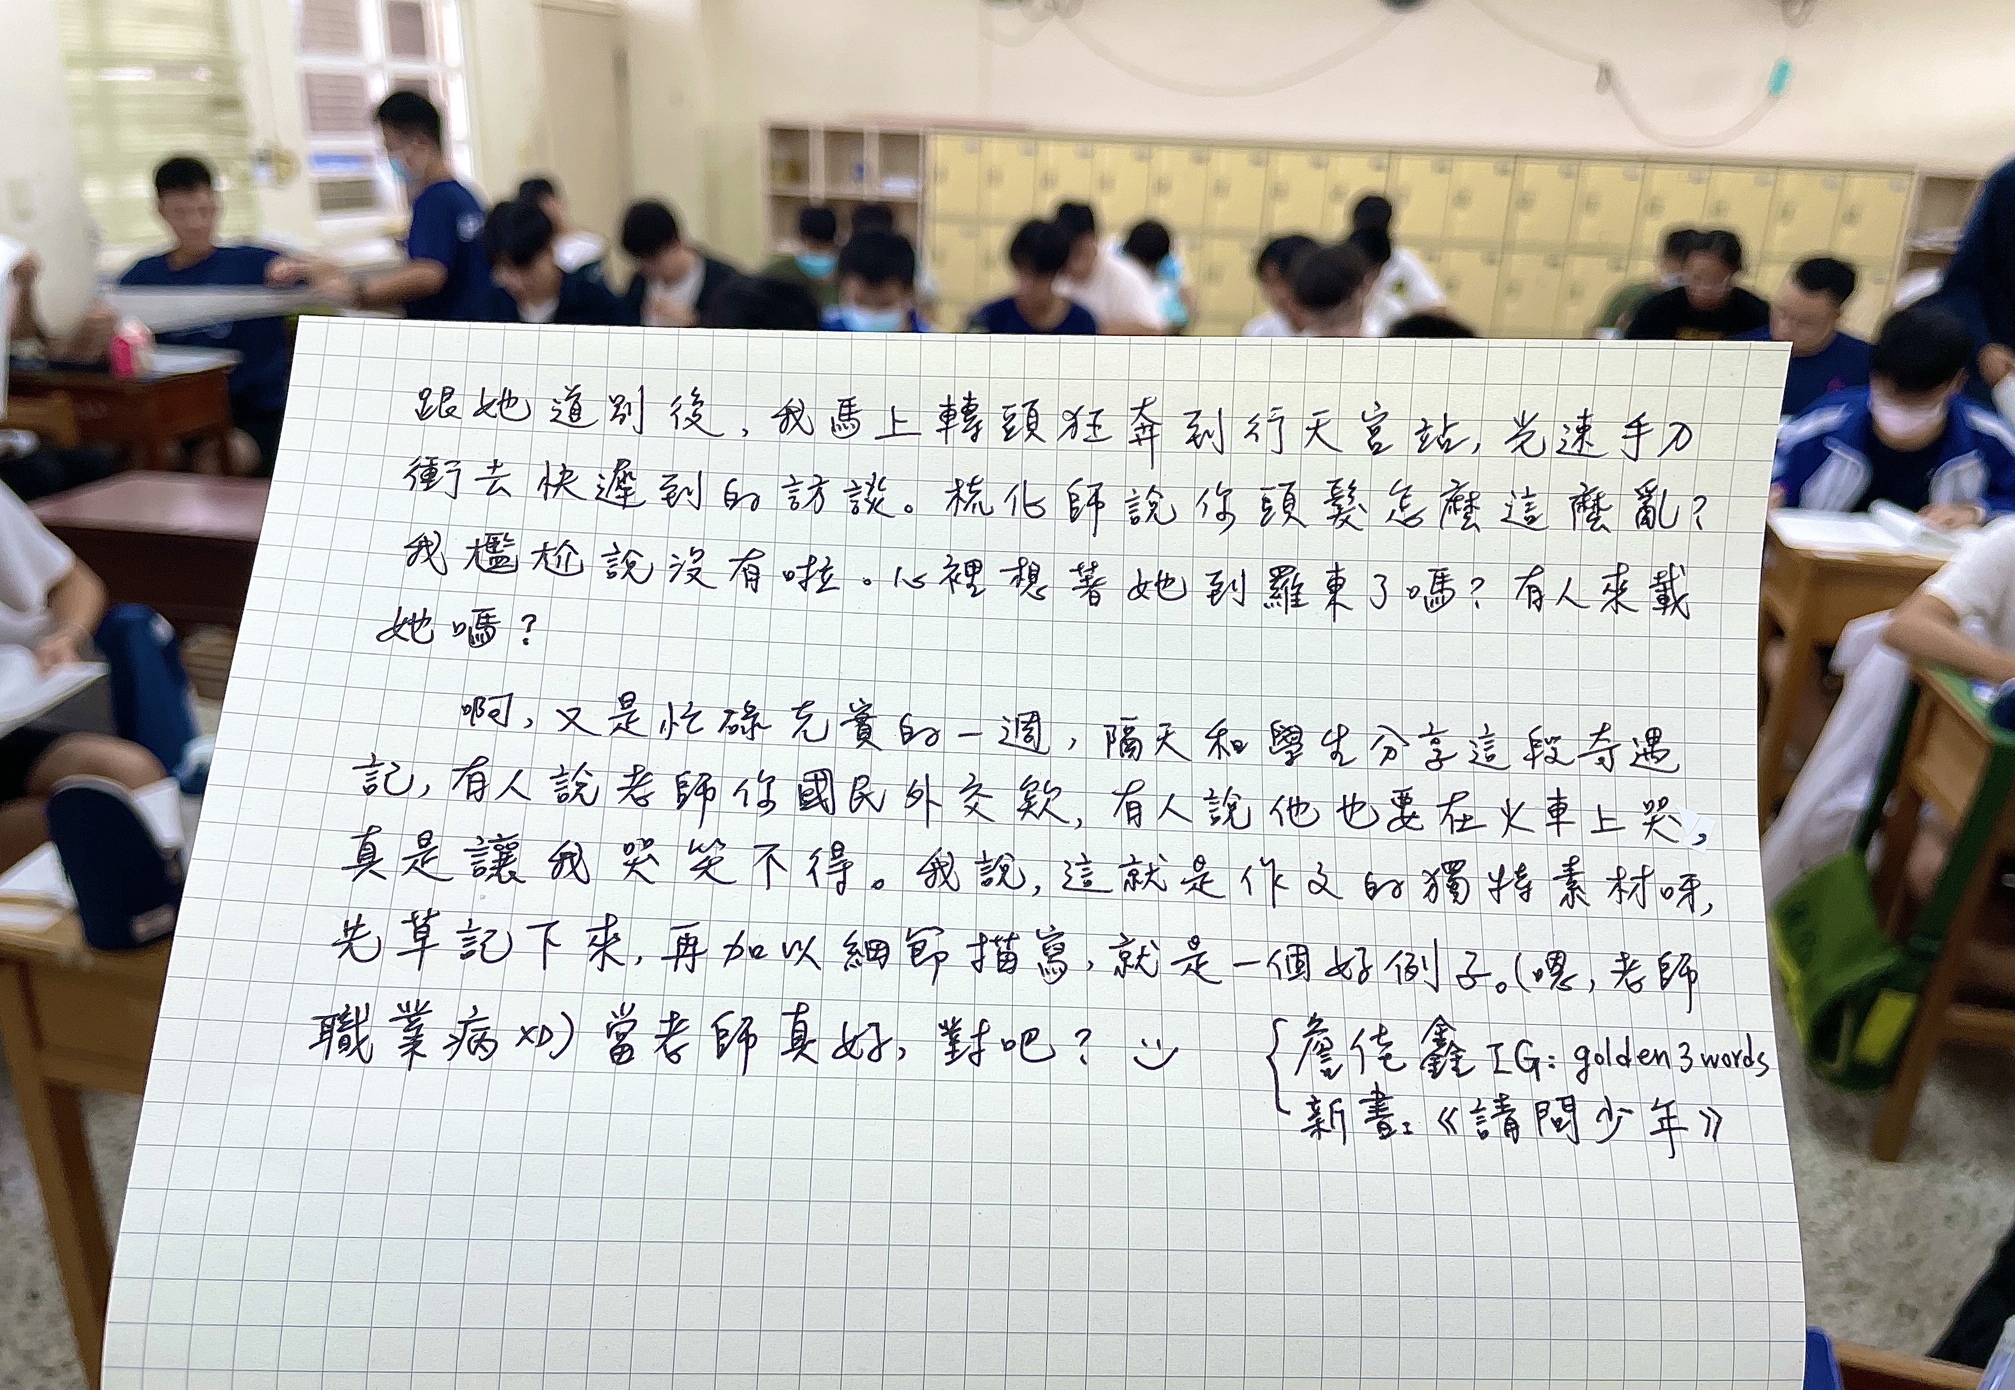 跟她道別後,我馬上轉頭狂奔到行天宮站,光速手刀
衝去快遲到的訪談。梳化師說你頭髮怎麼這麼亂?
我尷尬說沒有啦。心裡想著她到羅東了嗎?有人來載
她嗎?
啊,又是忙碌充實的一週,隔天和學生分享這段奇遇
記,有人說老師你國民外交欸,有人說他也要在火車上哭,
真是讓我哭笑不得。我說,這就是作文的獨特素材呀,
先草記下來,再加以細節描寫,就是一個好例子。(嗯,老師
職業病XD)當老師真好,對吧?
詹佳鑫IG:golden3words
新書:《請問少年》